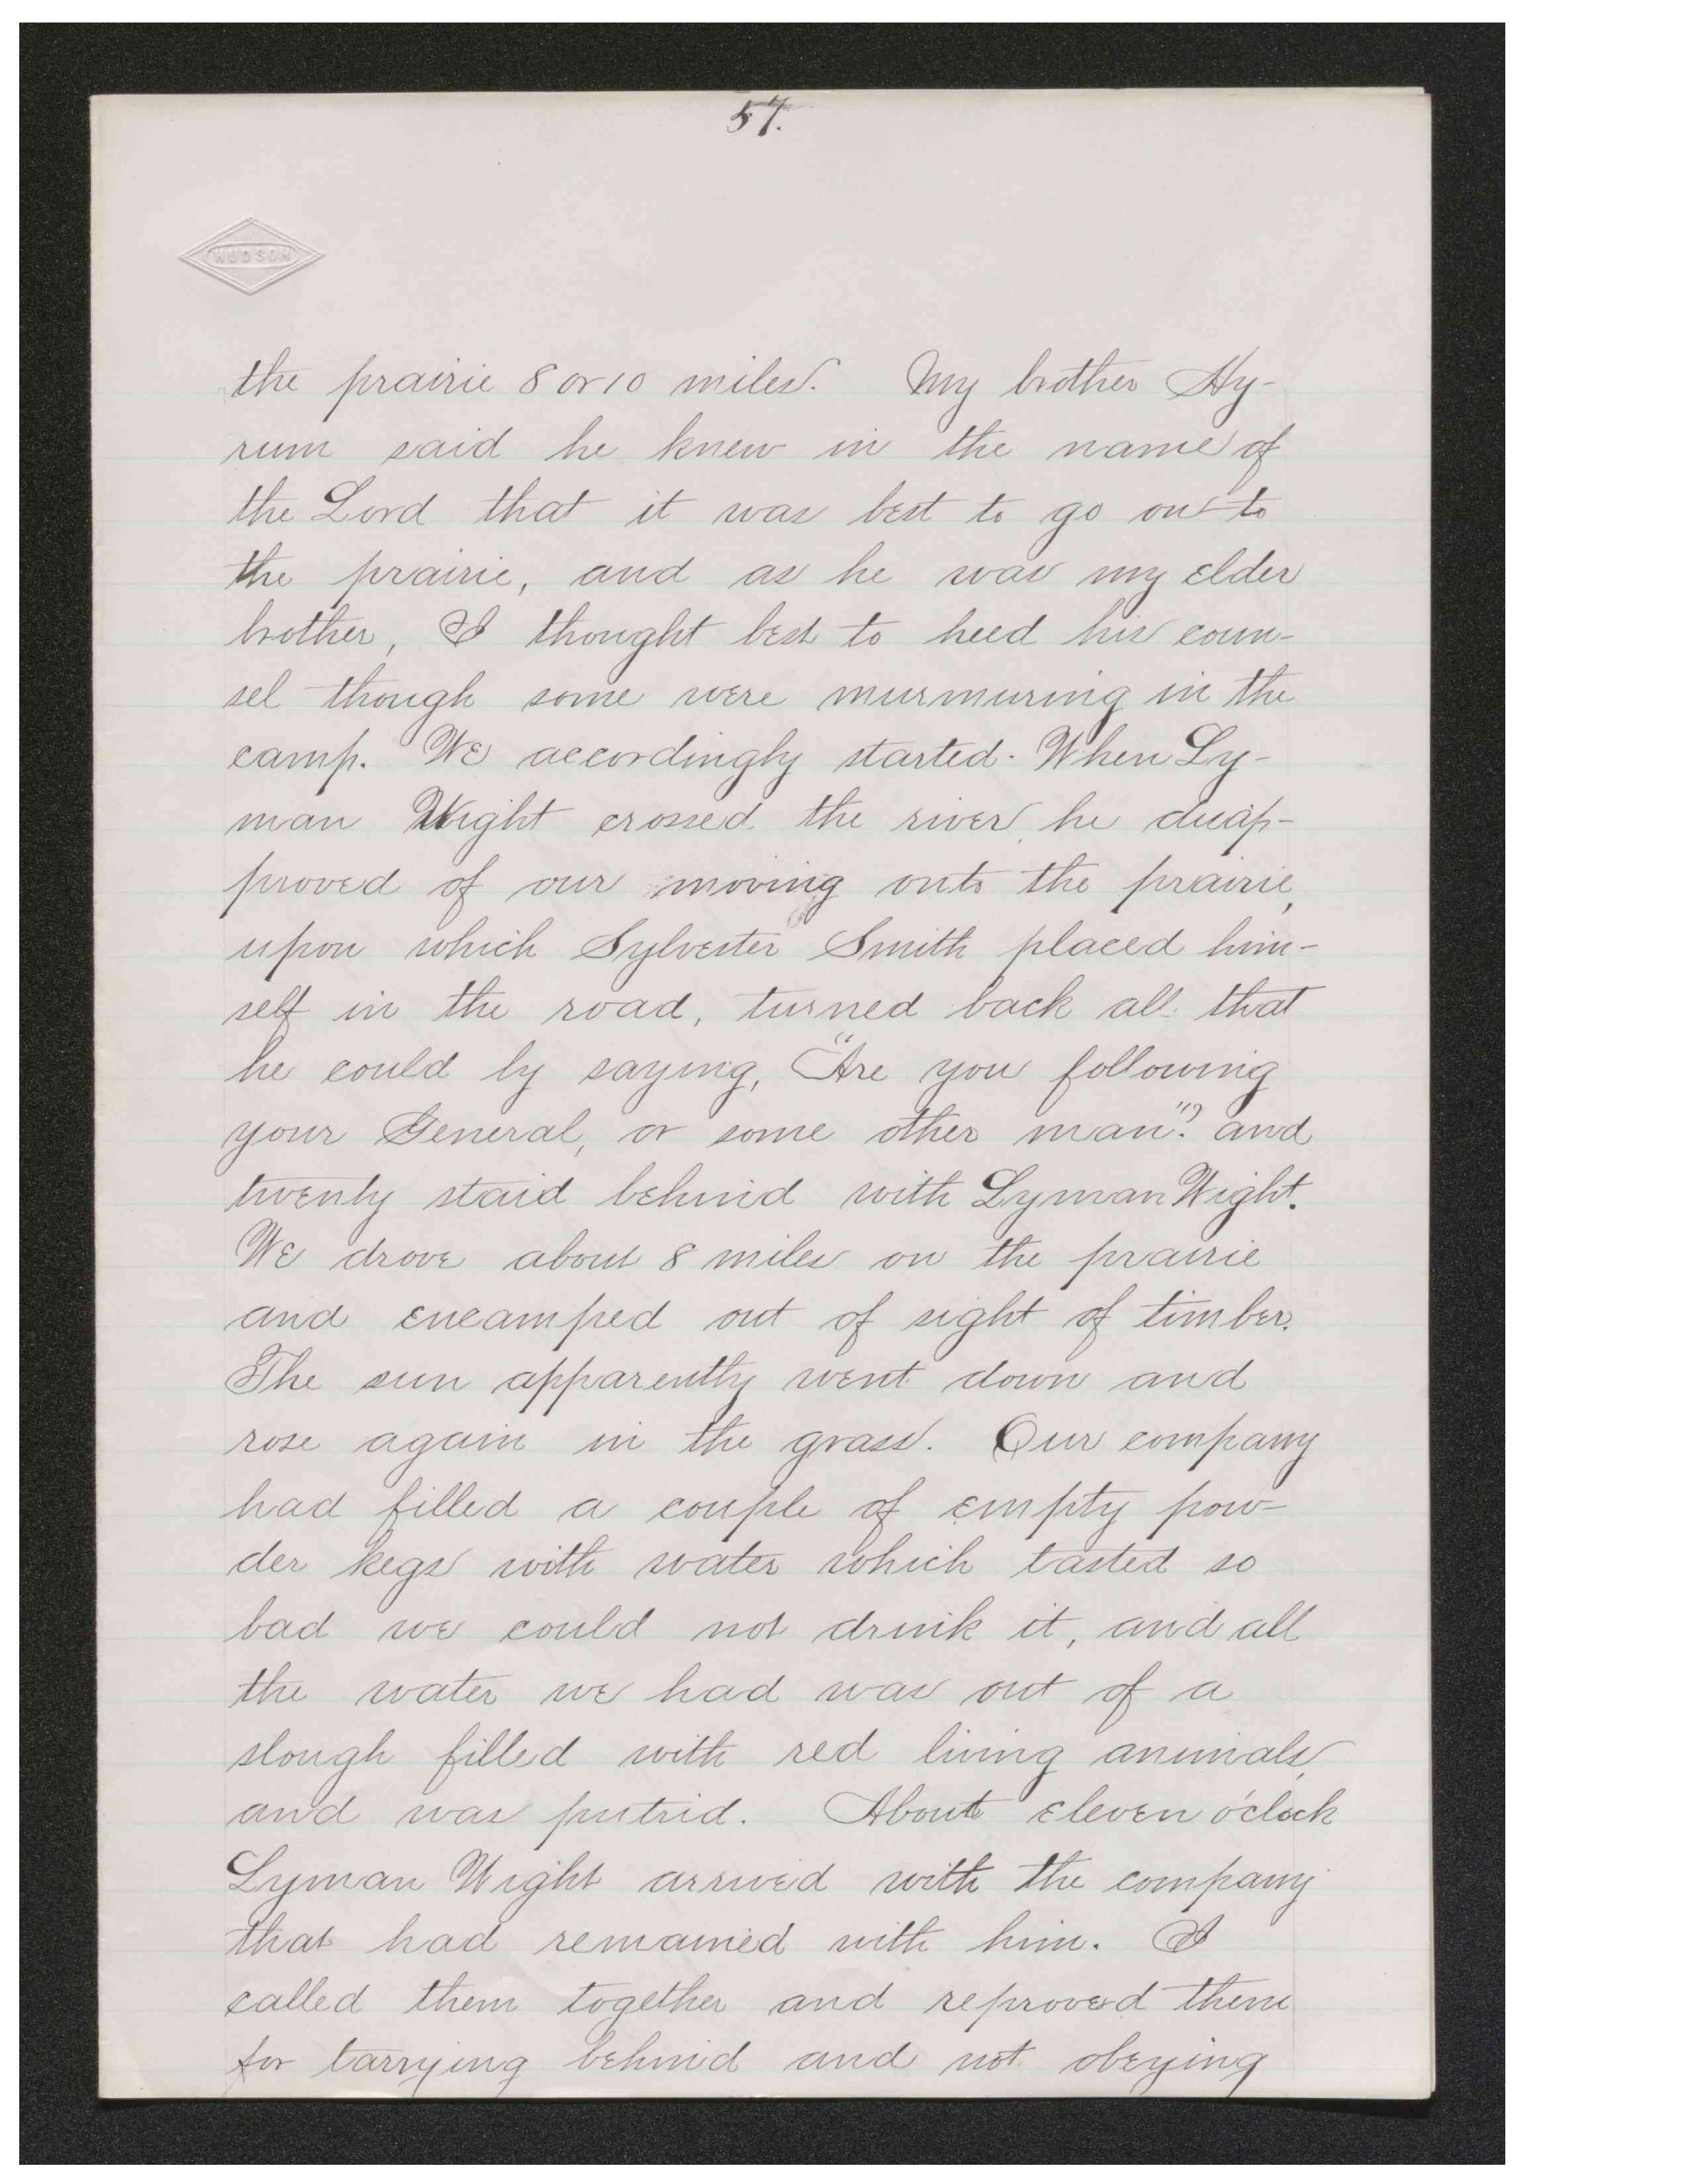 57.
HUDSON
the prairie 8 or 10 miles. My brother Hy-
rum said he knew in the name of
the Lord that it was best to go on to
the prairie, and as he was my elder
brother, I thought best to heed his coun-
sel though some were murmuring in the
camp. We accordingly started. When Ly-
man Wight crossed the river he disap-
proved of our moving onto the prairie,
upon which Sylvester Smith placed him-
self in the road, turned back all that
he could by saying, "Are you following
your General, or some other man"? and
twenty staid behind with Lyman Wight.
We drove about 8 miles on the prairie
and encamped out of sight of timber.
The sun apparently went down and
rose again in the grass. Our company
had filled a couple of empty pow-
der kegs with water which tasted so
bad we could not drink it, and all
the water we had was out of a
slough filled with red living animals,
and was putrid. About eleven o'clock
Lyman Wight arrived with the company
that had remained with him. I
called them together and reproved them
for tarrying behind and not obeying